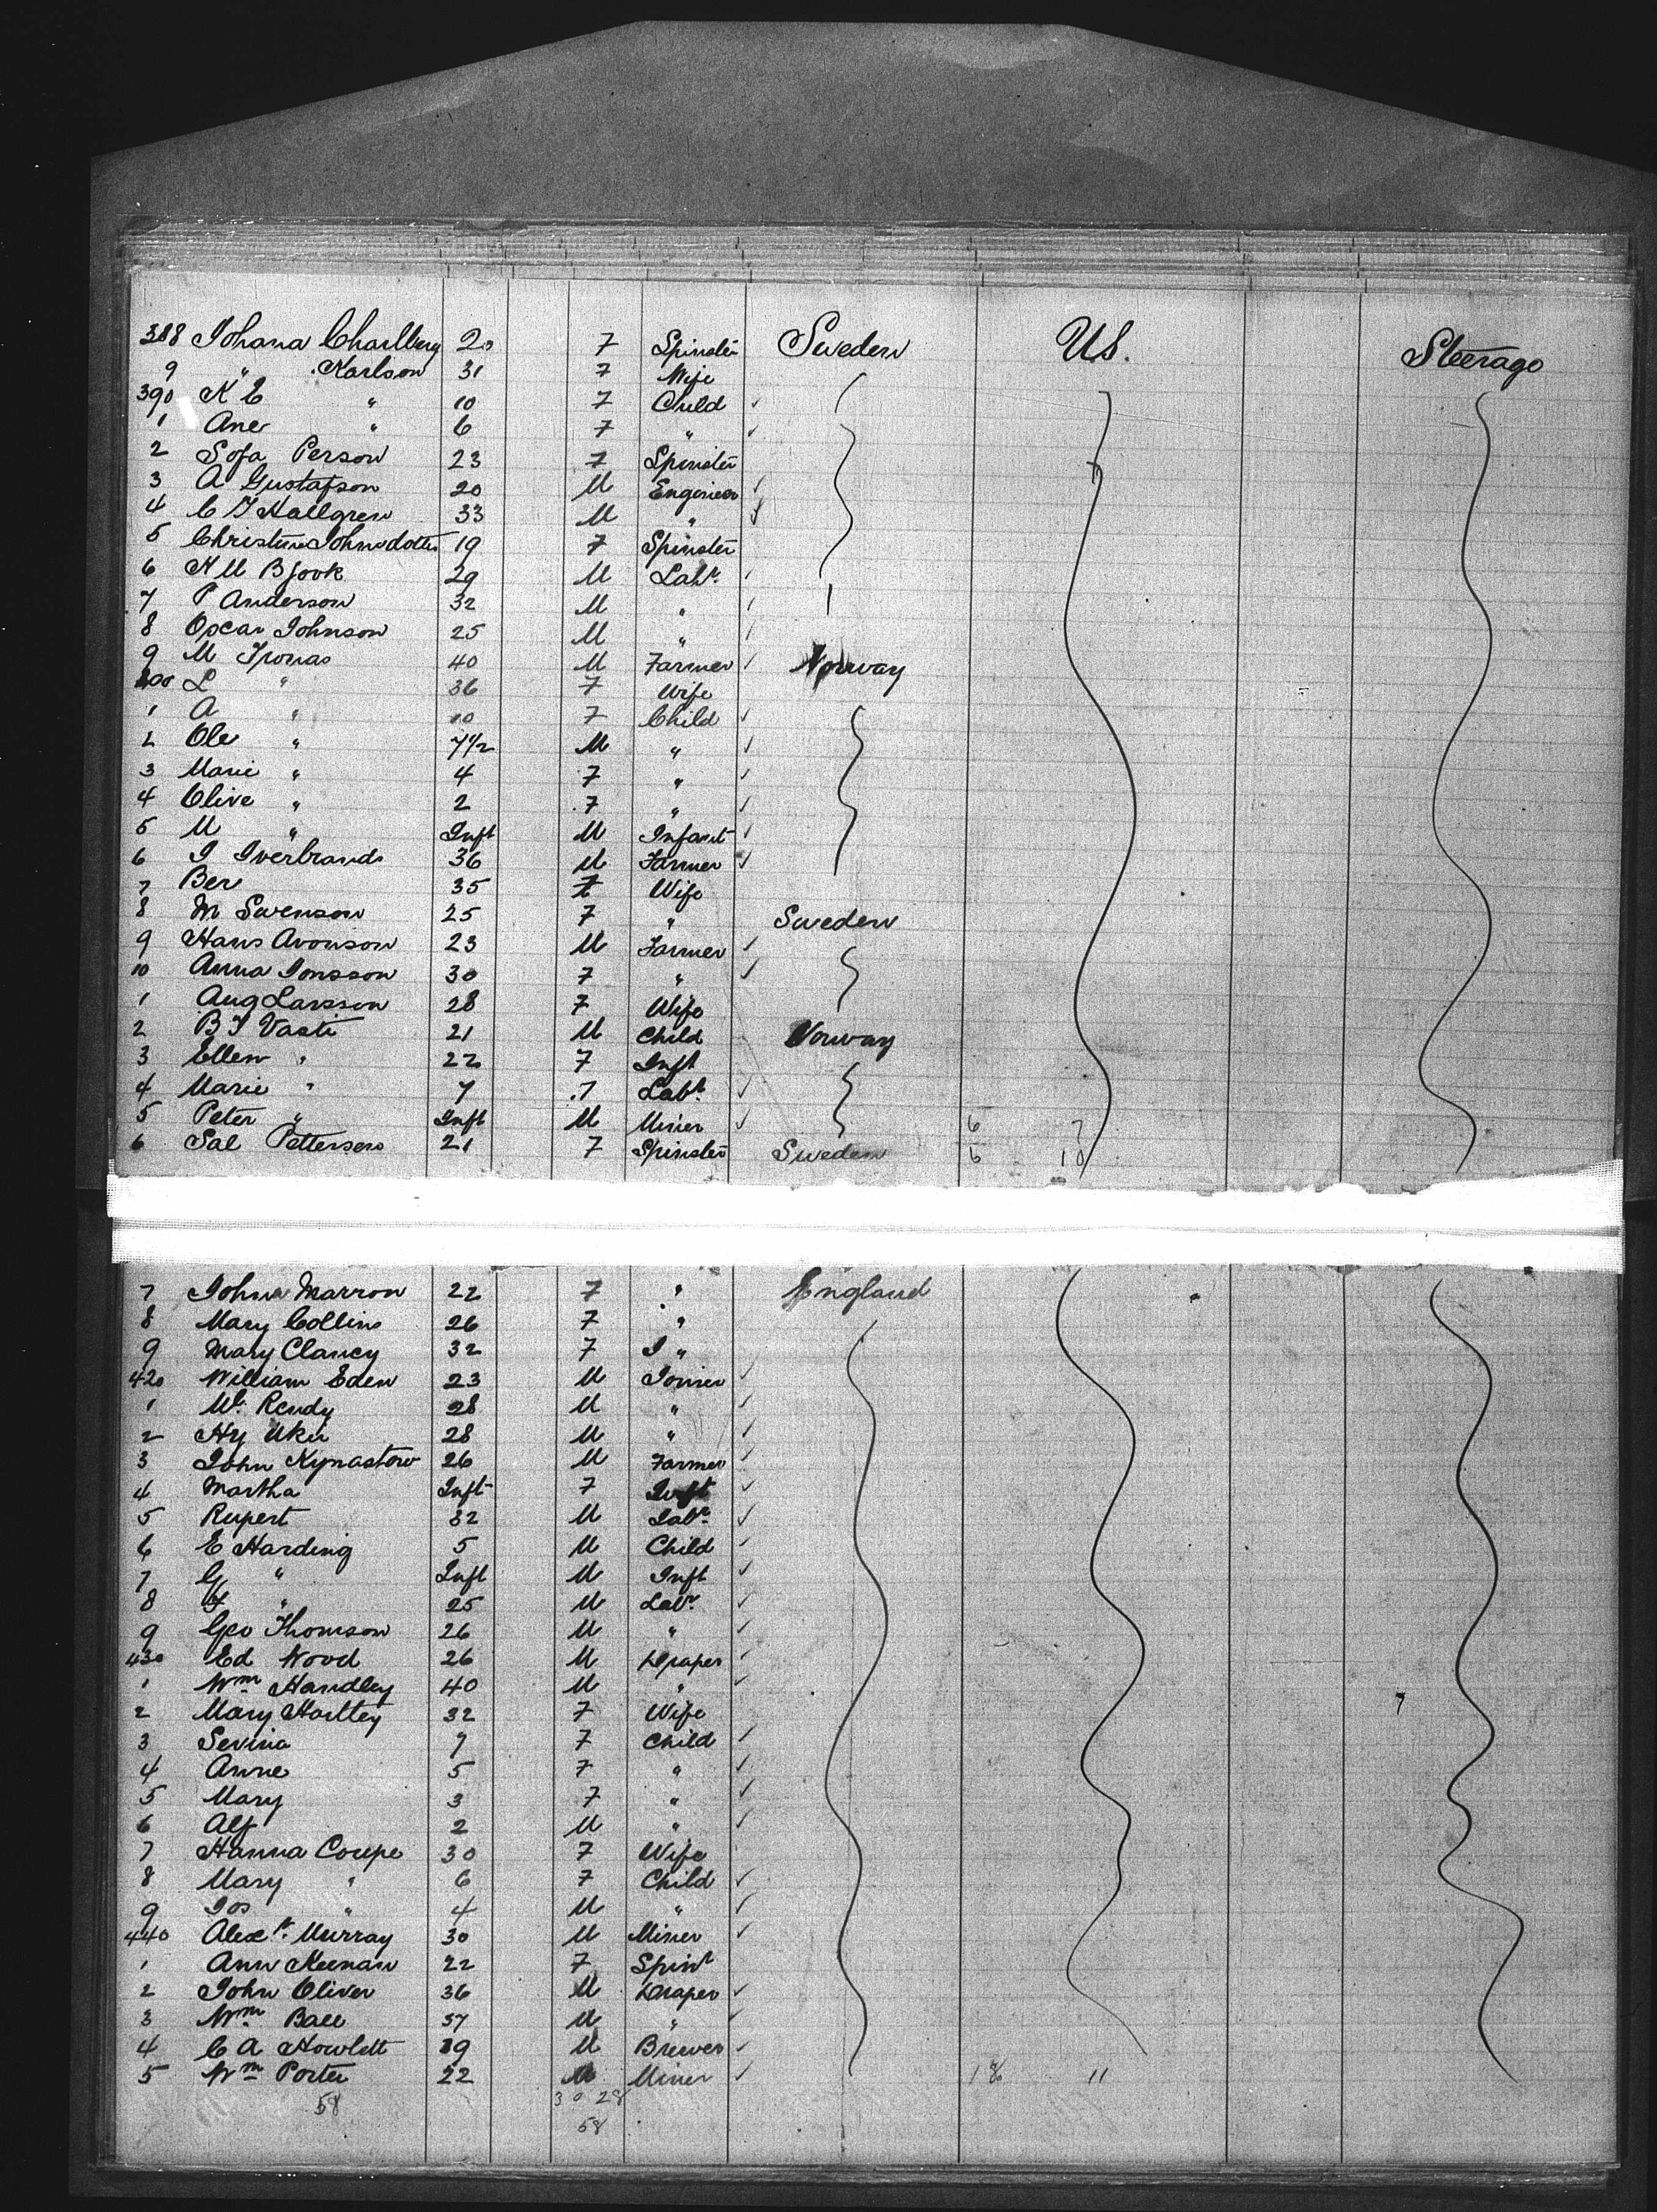 388 Johana Charlberg 20 F Spinster Sweden US. Steerage
9 " Karlson 31 F Wife
390 K C " 10 F Child
1 Ane " 6 F "
2 Sofa Person 23 F Spinster
3 A Gustafson 20 M Engenieer
4 C J Hallgren 33 M "
5 Christine Johnsdotter 19 F Spinster
6 N M Bjook 29 M Labr.
7 P Anderson 32 M "
8 Oscar Johnson 25 M "
9 M Ironas 40 M Farmer Norway
400 L " 36 F Wife
1 A " 10 F Child
2 Ole " 7 1/2 M "
3 Marie " 4 F "
4 Olive " 2 F "
5 M " Inft M Infant
6 I Iverbrands 36 M Farmer
7 Ber 35 F Wife
8 M Swenson 25 F " Sweden
9 Hans Aronson 23 M Farmer
10 Anna Jonsson 30 F "
1 Aug Larsson 28 F Wife
2 B J Vasti 21 M Child Norway
3 Ellen " 22 F Inft
4 Marie " 7 F Labr.
5 Peter " Inft M Miner 6 7
6 Sal Pettersen 21 F Spinster Sweden 6 10
7 Johna Marron 22 F " England
8 Mary Collins 26 F "
9 Mary Clancy 32 F "
420 William Eden 23 M Joiner
1 Wm. Rendy 28 M "
2 Hy 28 M "
3 John Kynaston 26 M Farmer
4 Martha Inft F Inft
5 Rupert 32 M Labr.
6 E Harding 5 M Child
7 G " Inft M Inft
8 " 25 M Labr.
9 Geo Thomson 26 M "
430 Ed Wood 26 M Draper
1 Wm Handley 40 M "
2 Mary Hartley 32 F Wife
3 Sevina 7 F Child
4 Anne 5 F "
5 Mary 3 F "
6 Alf 2 M "
7 Hanna Coupe 30 F Wife
8 Mary " 6 F Child
9 Jos " 4 M "
440 Alexr. Murray 30 M Miner
1 Ann Keenan 22 F Spinr
2 John Oliver 36 M Draper
3 Wm Ball 37 M "
4 C A Howlett 19 M Brewer
5 Wm Porter 22 M Miner 18 11
58 30 28
58